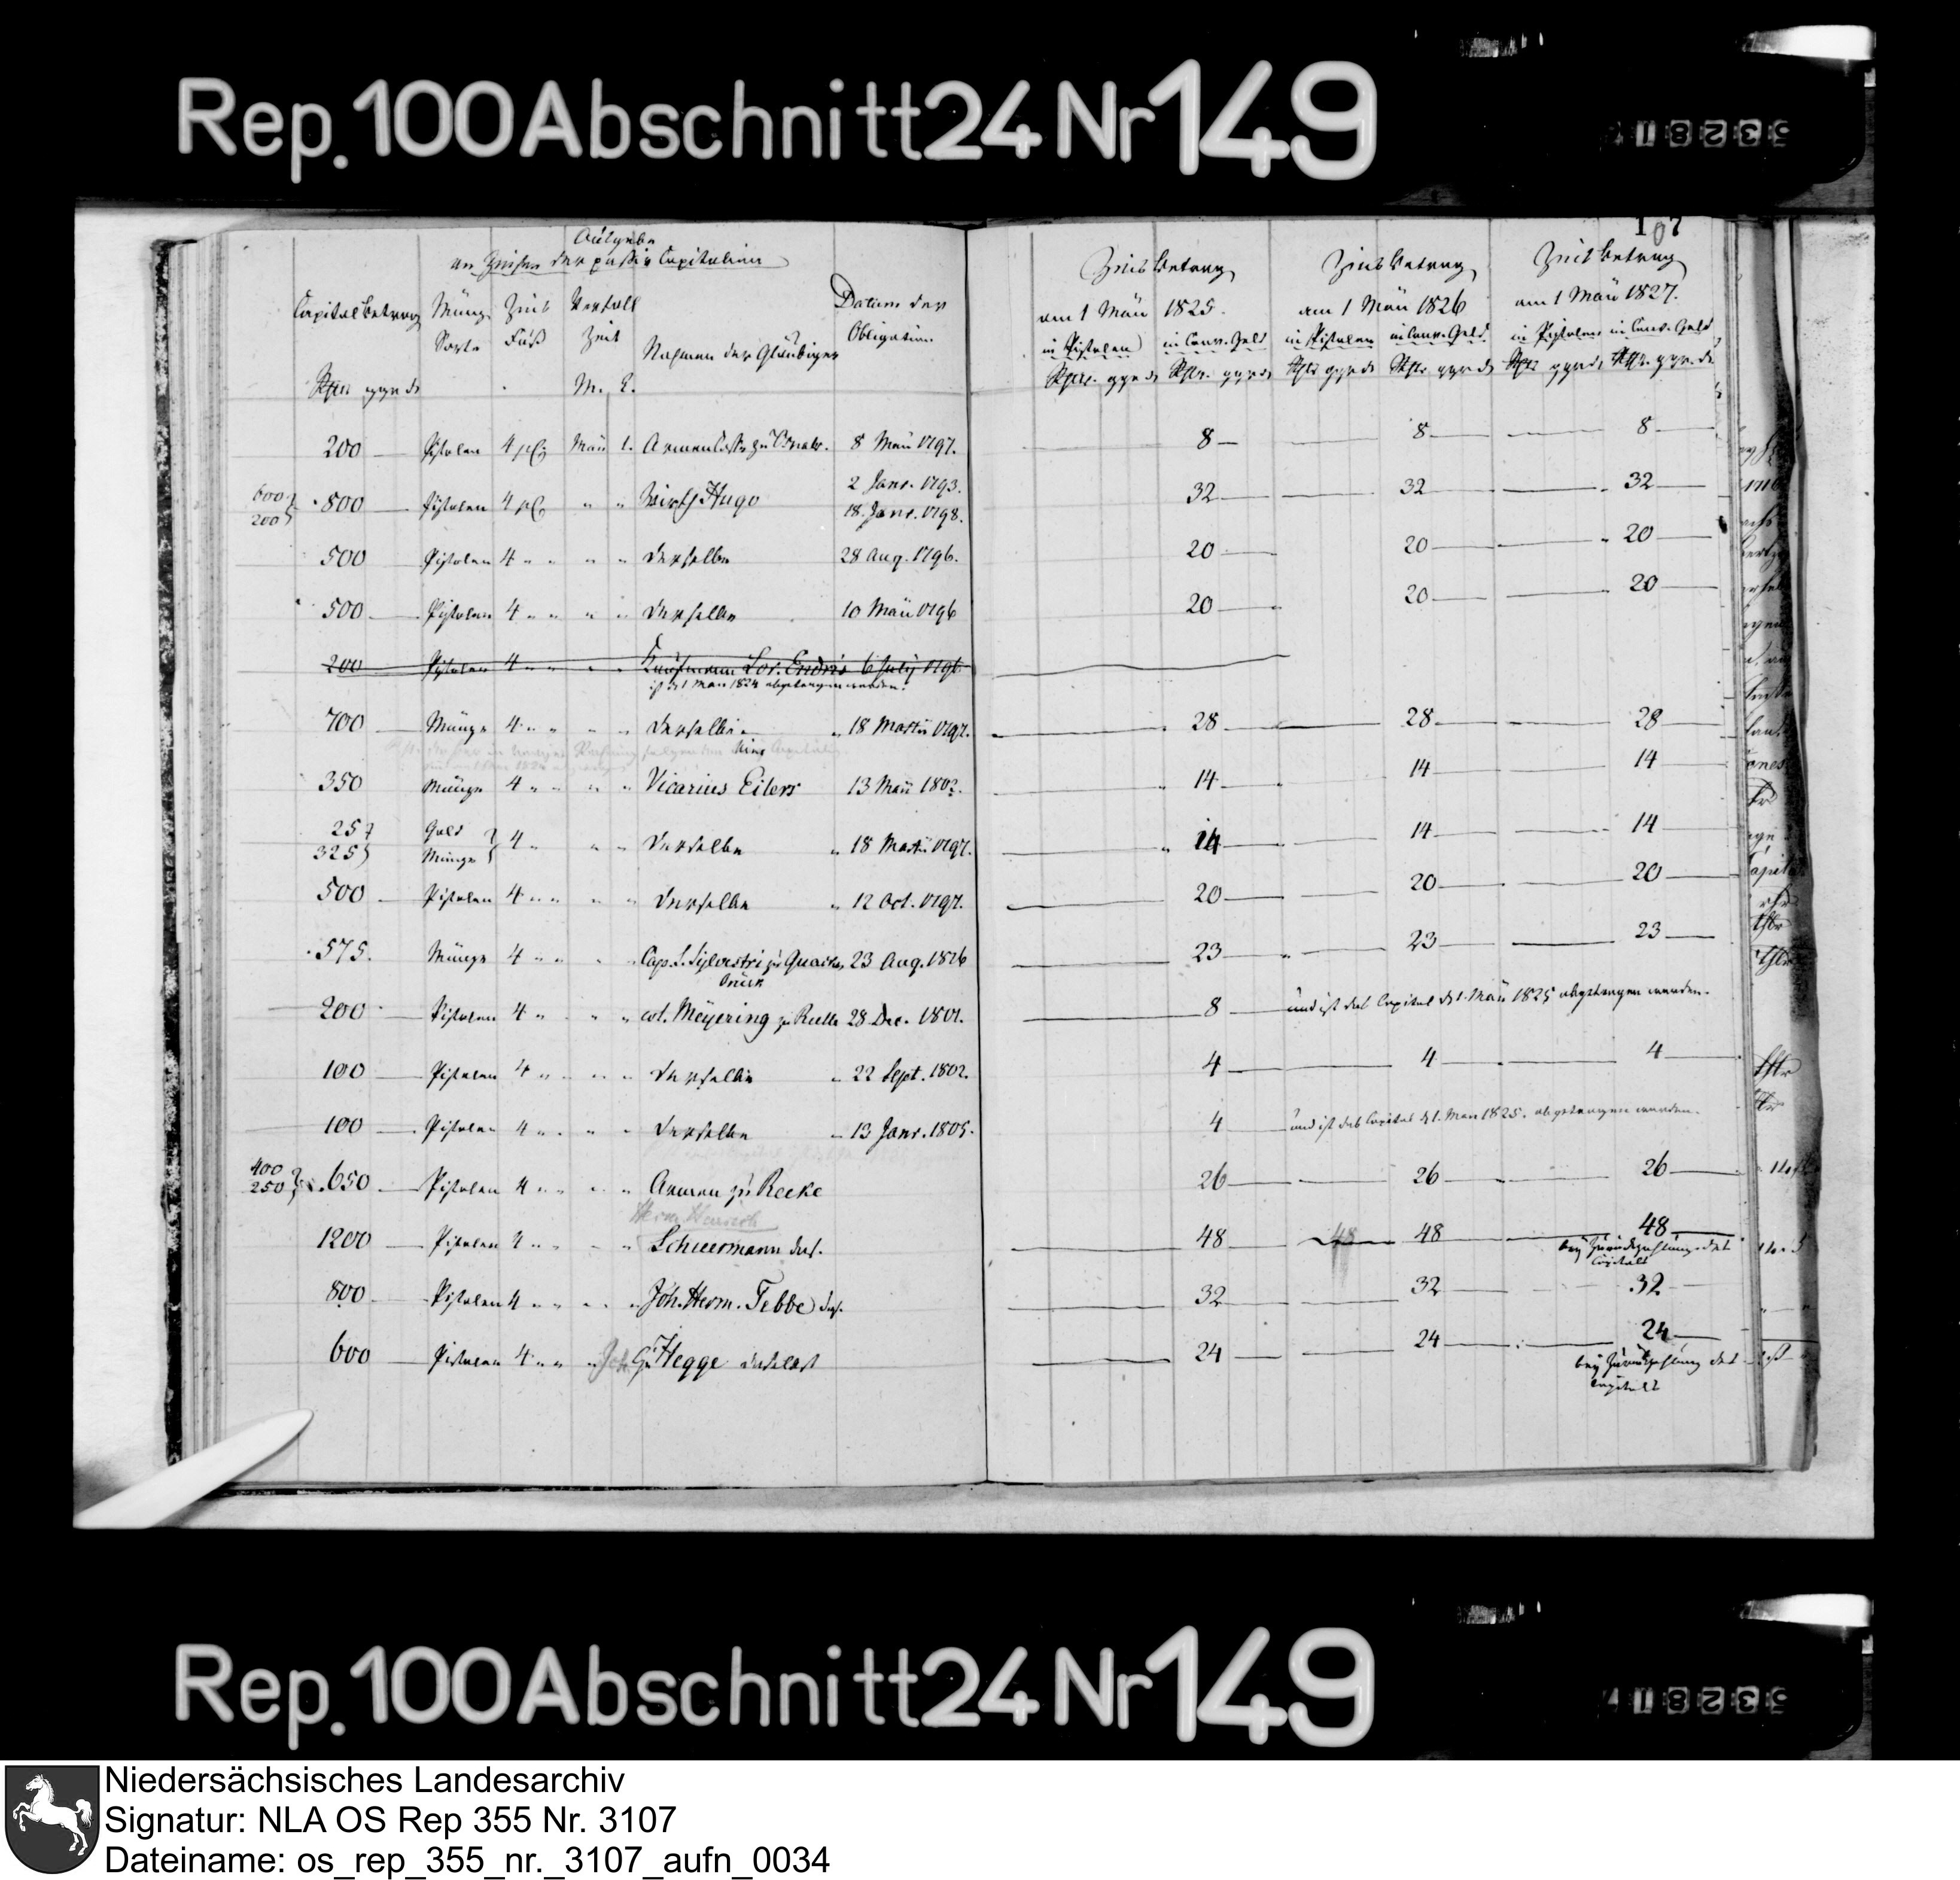 Rep. 100 Abschnitt 24 Nr 149
107
Ausgabe
an Zinsen der passiv Capitalien
Capitalbetrag Münz Sorte Zins Fuß Verfall Zeit Nahmen der Gläubiger Datum der Obligation
Rthlr ggr d M. T.
Zinsbetrag am 1 Maii 1825. Zinsbetrag am 1 Maii 1826 Zinsbetrag am 1 Maii 1827.
in Pistolen in Conv. Geld in Pistolen in Conv. Geld. in Pistolen in Conv. Geld
Rthlr. ggr d Rthlr. ggr d Rthlr ggr d Rthlr ggr d Rthlr ggr d Rthlr. ggr d
200 Pistolen 4 pC Maii 1. Armen zu 8 Maii 1797. 8 8 8
600 200 800 Pistolen 4 pC " " Hugo 2 Janr. 1793. 18. Janr. 1798. 32 32 32
500 Pistolen 4 " " " " Derselbe 28 Aug. 1796. 20 20 20
500 Pistolen 4 " " " " Derselbe 10 Maii 1796 20 20 20
200 Pistolen 4 " " " " Kaufmann Lor. Endris 6 July 1796
ist d 1 Maii 1824 abgetragen worden.
700 Münze 4 " " " " Derselbe " 18 Martii 1797. 28 28 28
350 Münze 4 " " " " Vicarius Eilers 13 Maii 1802. 14 14 14
25 Gold
325 Münze 4 " " " Derselbe " 18 Martii 1797. 14 14 14
500 Pistolen 4 " " " " Derselbe " 12 Oct. 1797. 20 20 20
575. Münze 4 " " " " Cap. S. Sylvestri zu Quacken 23 Aug. 1826 23 23 23
brück
200 Pistolen 4 " " " col. Meyering zu Rulle 28 Dec. 1801. 8 und ist das Capital d 1. Maii 1825 abgetragen worden.
100 Pistolen 4 " " " " Derselbe " 22 Sept. 1802. 4 4 4
100 Pistolen 4 " " " " Derselbe " 13 Janr. 1805. 4 und ist das Capital d 1. Maii 1825. abgetragen worden.
400 250 650 Pistolen 4 " " " " Armen zu Recke 26 26 26
Herm Henrich
1200 Pistolen 4 " " " " Schürmann das. 48 48 48 48
bey Zurückzahlung des
Capitals
800 Pistolen 4 " " " " Joh. Herm. Tebbe das. 32 32 32
600 Pistolen 4 " " " Joh. Hegge daselbst 24 24 24
bey Zurückzahlung des
Capitals
Rep. 100 Abschnitt 24 Nr 149
Niedersächsisches Landesarchiv
Signatur: NLA OS Rep 355 Nr. 3107
Dateiname: os_rep_355_nr._3107_aufn_0034